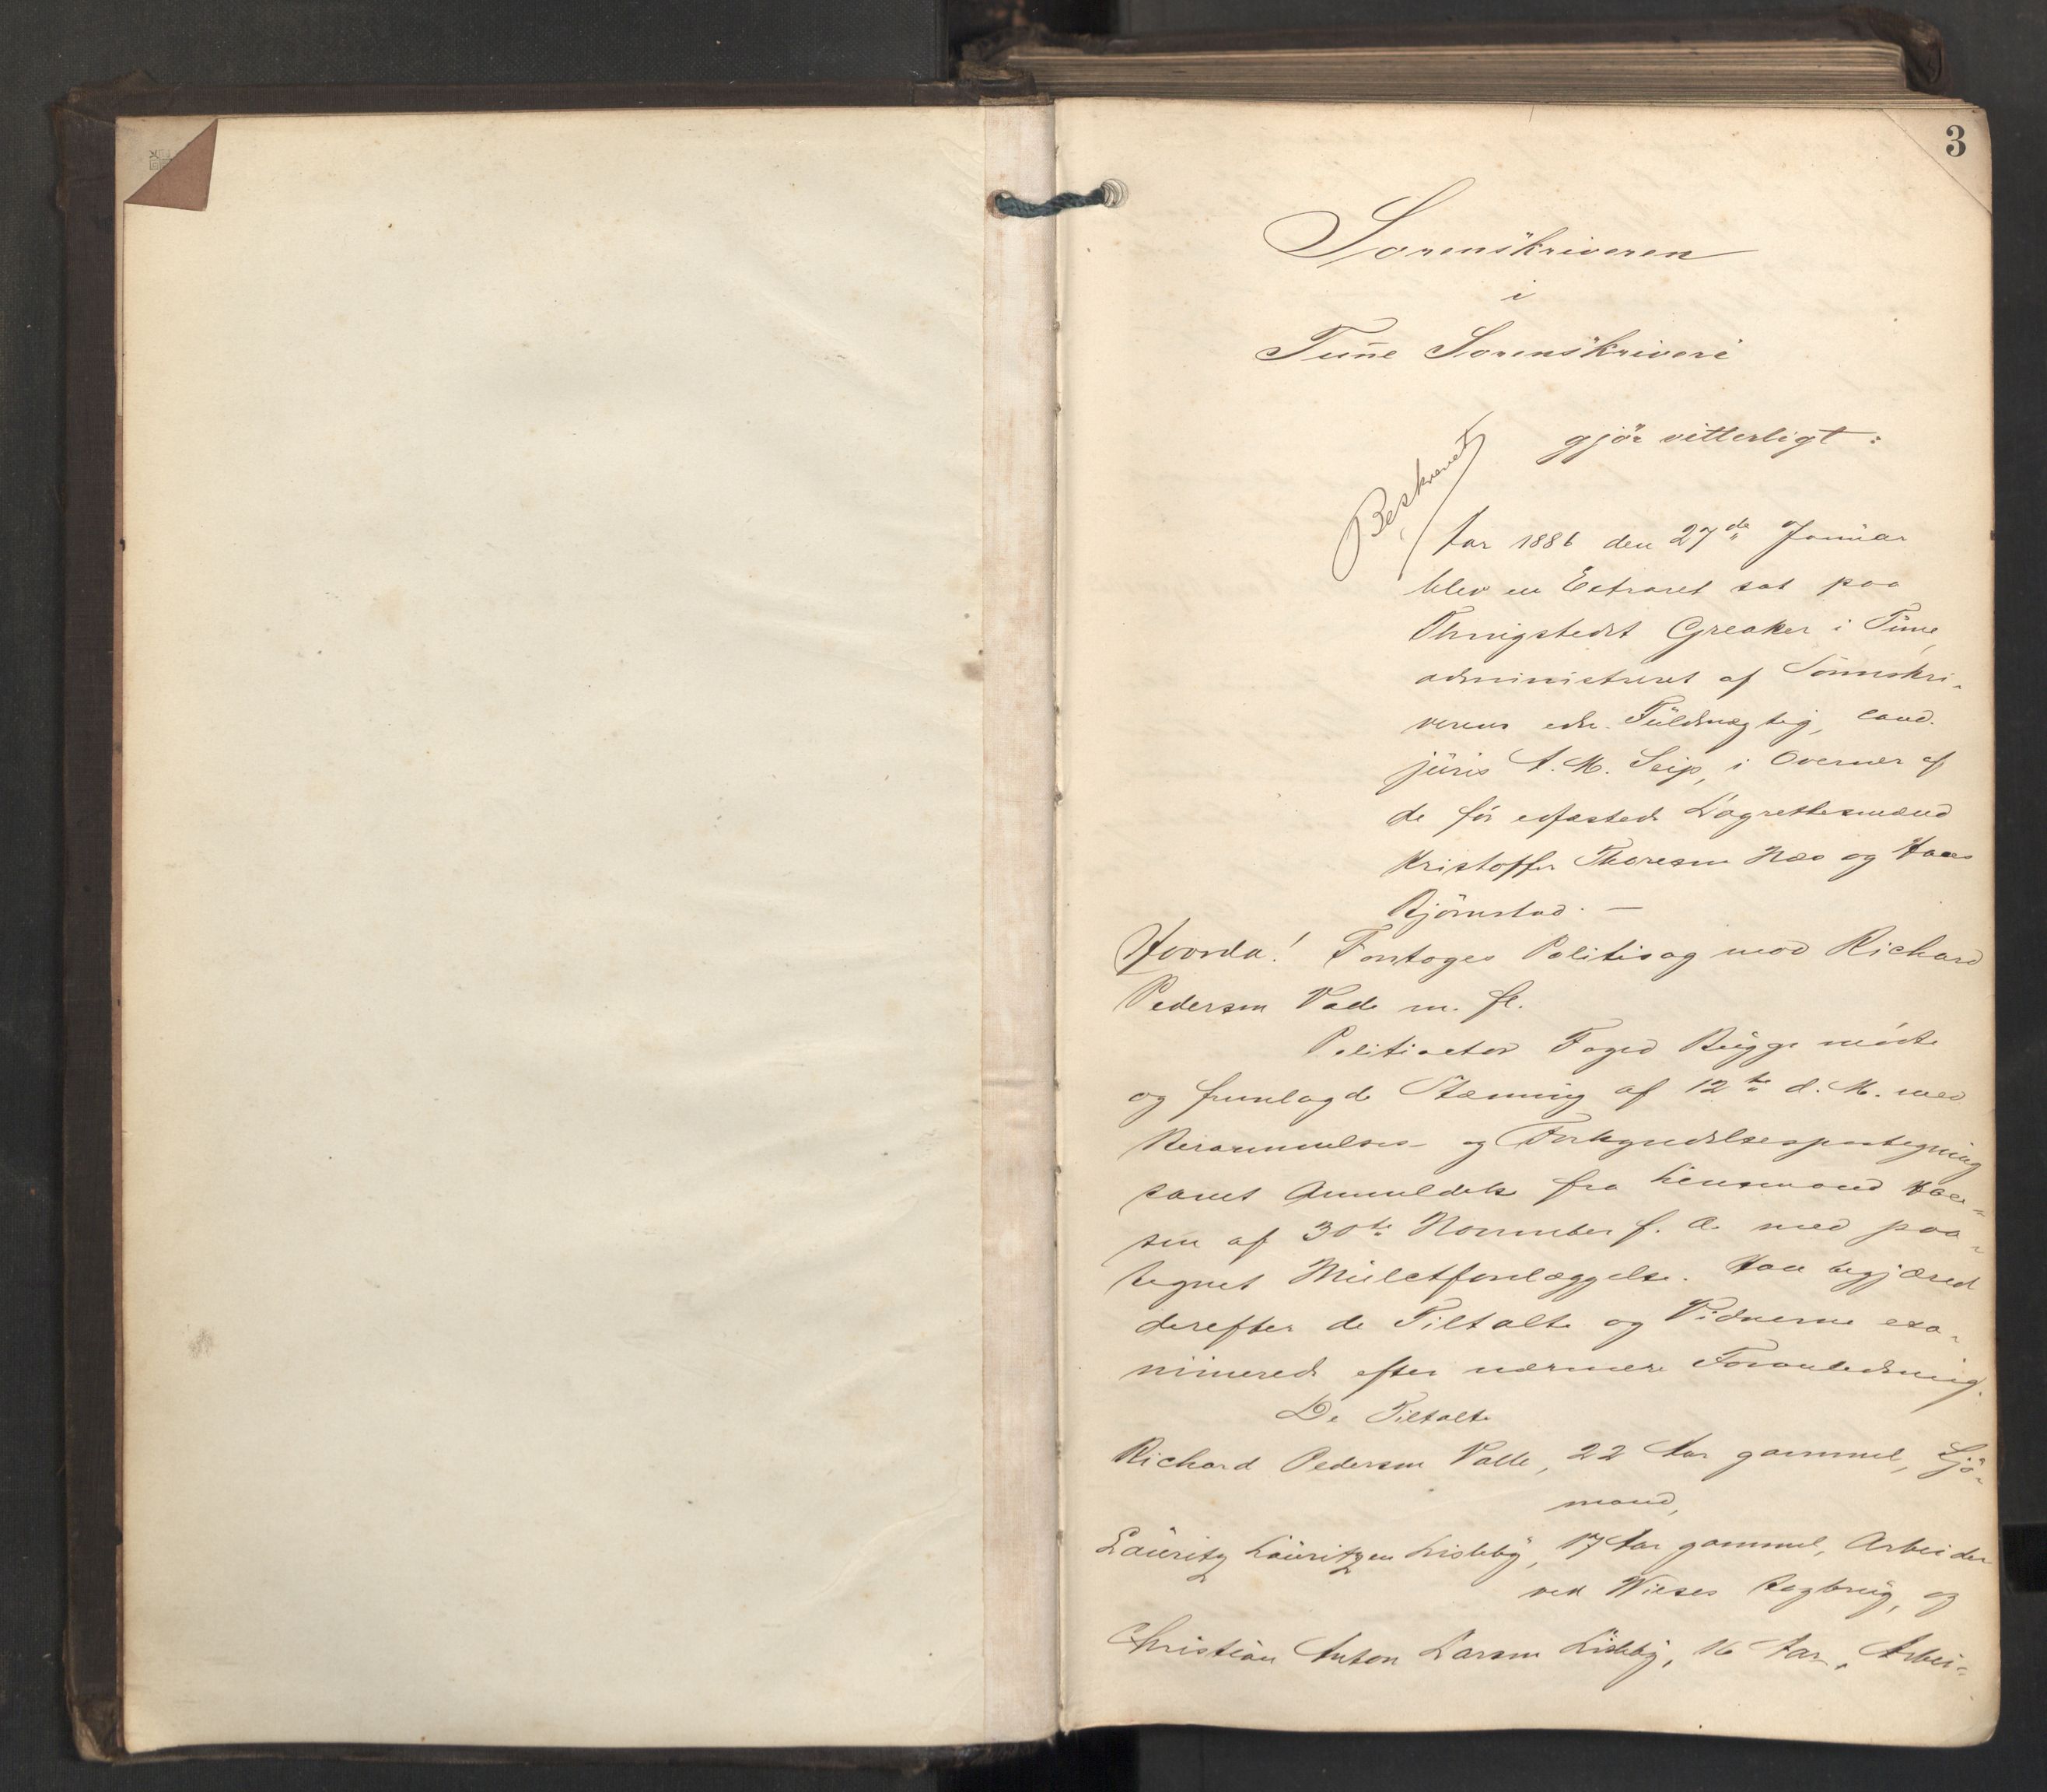 3
Sorenskriveren
i
Tune Sorenskriveri
gjör vitterligt:
Beskrevet
Aar 1886 den 27de Januar
blev en Extraret sat paa
Thingstedet Greaker i Tune,
administreret af Sorenskri-
verens edsv. Fuldmægtig, cand.
juris A. M. Seip, i Overvær af
de för edfæstede Lagrettesmænd
Kristoffer Thoresen Næs og Hans
Bjørnstad. —
Hvorda! Foretoges Politisag mod Richard
Pedersen Valle m. fl.
Politiactor Foged Bügge mödte
og fremlagde Stævning af 12te d. M. med
Berammelses- og Forkyndelsespaategning
samt Anmeldelse fra Lensmand Han-
sen af 30te November f. A. med paa-
tegnet Mulctforelæggelse. Han begjærede
derefter de Tiltalte og Vidnerne exa-
minerede efter nærmere Foranledning.
De Tiltalte
Richard Pedersen Valle, 22 Aar gammel, Sjö-
mand,
Lauritz Lauritzen Lisleby, 17 Aar gammel, Arbeider
ved Wieses Sagbrug, og
Christian Anton Larsen Lisleby, 16 Aar, Arbei-